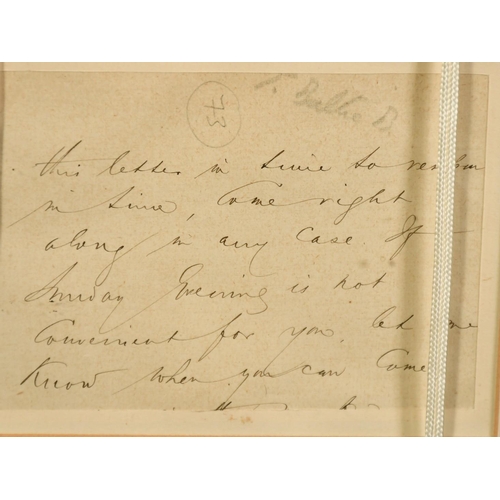 73
this letter in time to
in time, Come right
along in any case. If
Sunday Evening is not
Convenient for you, let me
Know when you can Come